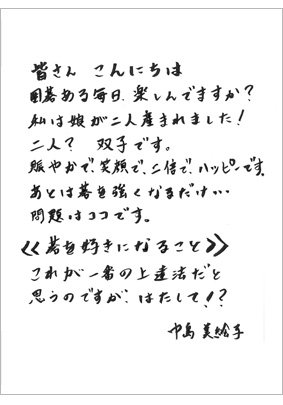 皆さん こんにちは
囲碁ある毎日、楽しんでますか?
私は娘が二人産まれました!
二人? 双子です。
賑やかで、笑顔で、二倍で、ハッピーです。
あとは碁を強くなるだけ…
問題はココです。
《碁を好きになること》
これが一番の上達法だと
思うのですが、はたして!?
中島 美絵子